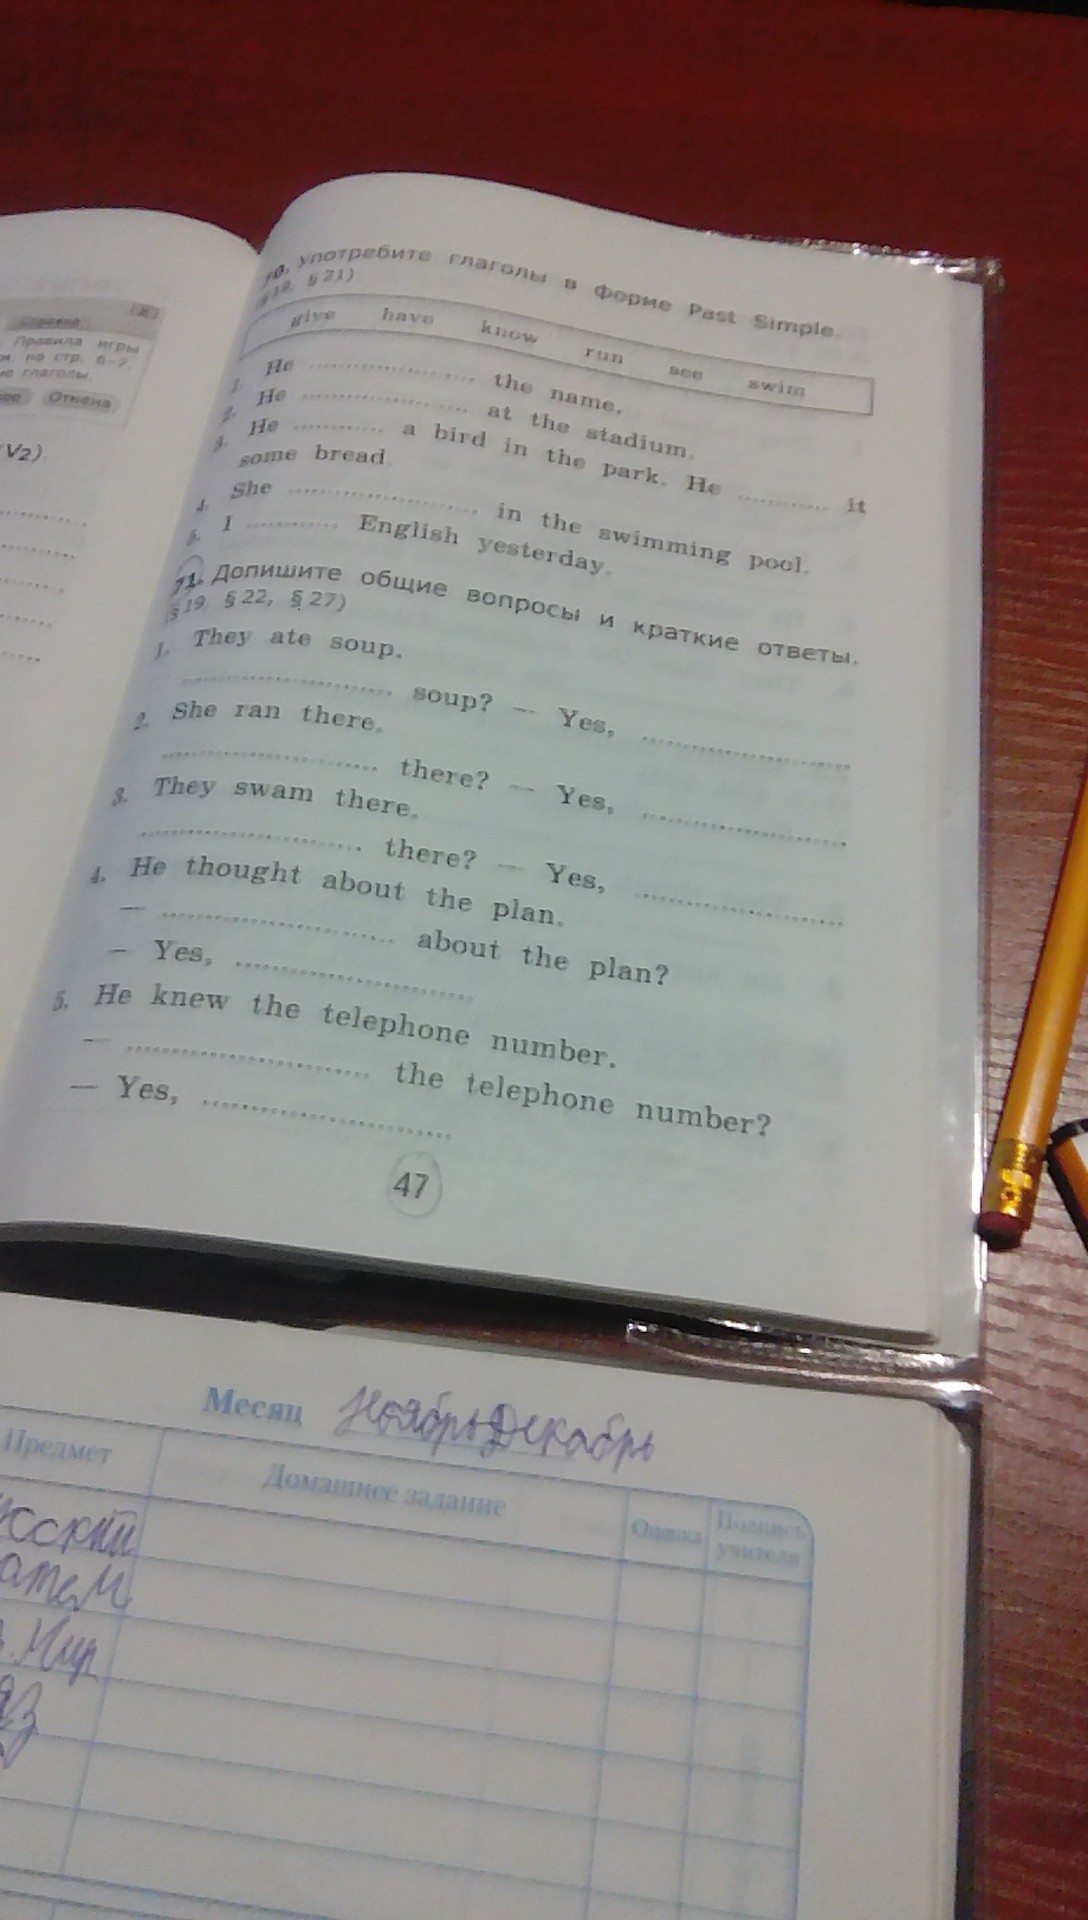 Справка
Правила игры
на стр. 6–7.
глаголы.
Отмена
V₂)
70. Употребите глаголы в форме Past Simple.
(§ 19, § 21)
give have know run see swim
1. He .................... the name.
2. He .................... at the stadium.
3. He ........... a bird in the park. He ........... it
some bread
4. She ....................... in the swimming pool.
5. I ........... English yesterday.
71. Допишите общие вопросы и краткие ответы.
(§ 19, § 22, § 27)
1. They ate soup.
.......................... soup? — Yes, ..........................
2. She ran there.
.......................... there? — Yes, ..........................
3. They swam there.
.......................... there? — Yes, ..........................
4. He thought about the plan.
— ............................ about the plan?
— Yes, ............................
5. He knew the telephone number.
— ............................ the telephone number?
— Yes, ............................
47
Месяц Ноябрь Декабрь
Предмет Домашнее задание Оценка Подпись учителя
Мир